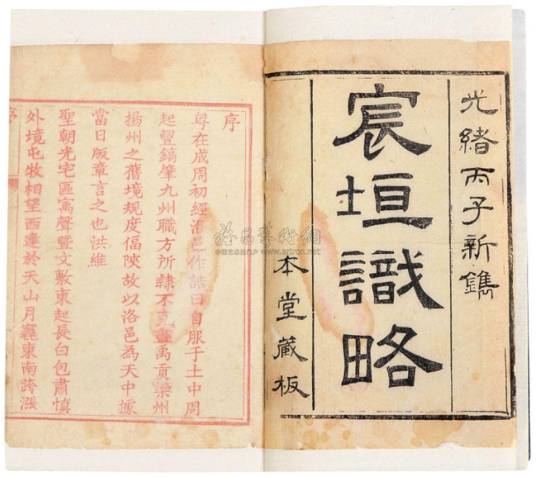 光緒丙子新鐫
宸垣識略
本堂藏板
序
粤在成周初經洛邑作誥曰自服于土中周
起豐鎬肇九州職方所隷不克盡禹貢梁州
揚州之舊境規度偪陜故以洛邑為天中據
當日版章言之也洪維
聖朝光宅區寓聲暨文敷東起長白包肅慎
外境屯牧相望西連於天山月竁東南跨漲
序